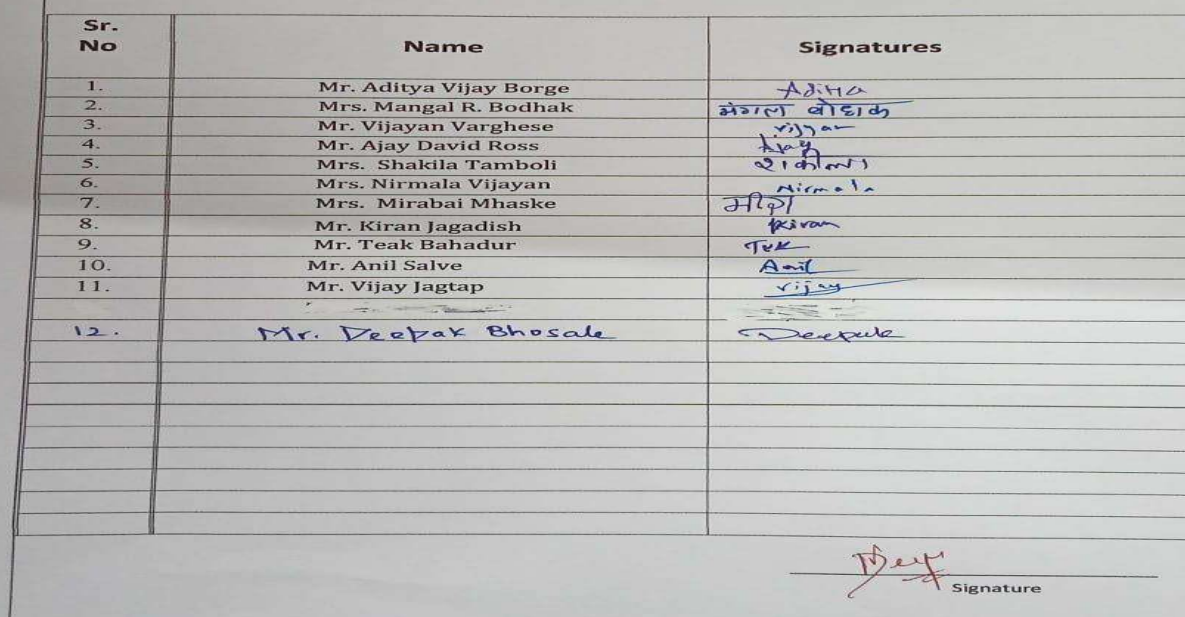 Sr. No Name Signatures
1. Mr. Aditya Vijay Borge Aditya
2. Mrs. Mangal R. Bodhak मंगल बोधक
3. Mr. Vijayan Varghese Vijyan
4. Mr. Ajay David Ross Ajay
5. Mrs. Shakila Tamboli शकीला
6. Mrs. Nirmala Vijayan Nirmala
7. Mrs. Mirabai Mhaske मीरा
8. Mr. Kiran Jagadish Kiran
9. Mr. Teak Bahadur Tek
10. Mr. Anil Salve Anil
11. Mr. Vijay Jagtap Vijay
12. Mr. Deepak Bhosale Deepak
Signature